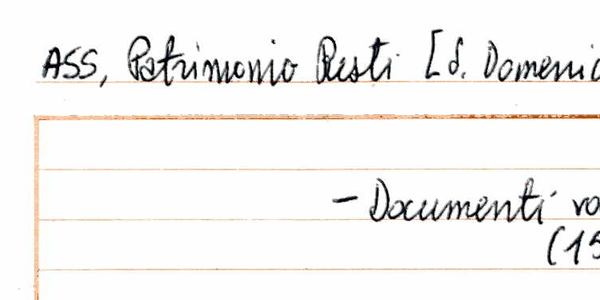 ASS, Patrimonio Resti [S. Domenic
- Documenti va
(15